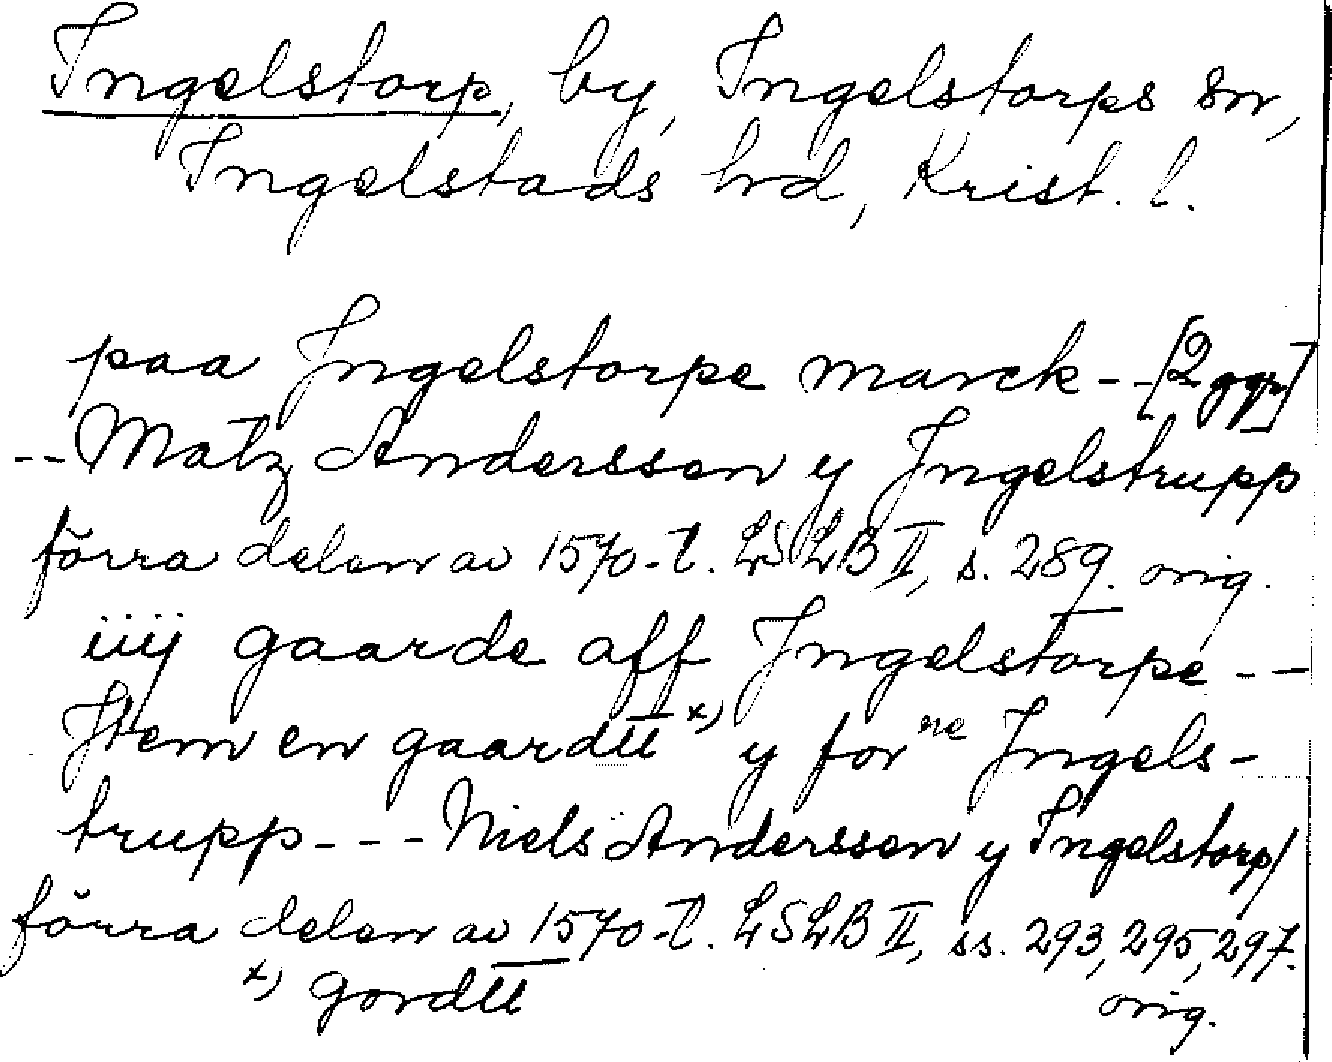 Ingelstorp, by, Ingelstorps sn,
Ingelstads hrd, Krist. l.
paa Jngelstorpe marck - - [2 ggr]
- - Matz Anderssen y Jngelstrupp
förra delen av 1570-t. LSLB II, s. 289. orig.
iiij gaarde aff Jngelstorpe - -
Jtem en gaardtt x) y for ne Jngels-
trupp - - - Niels Anderssen y Ingelstorp/
förra delen av 1570-t. LSLB II, ss. 293, 295, 297.
x) gordtt orig.